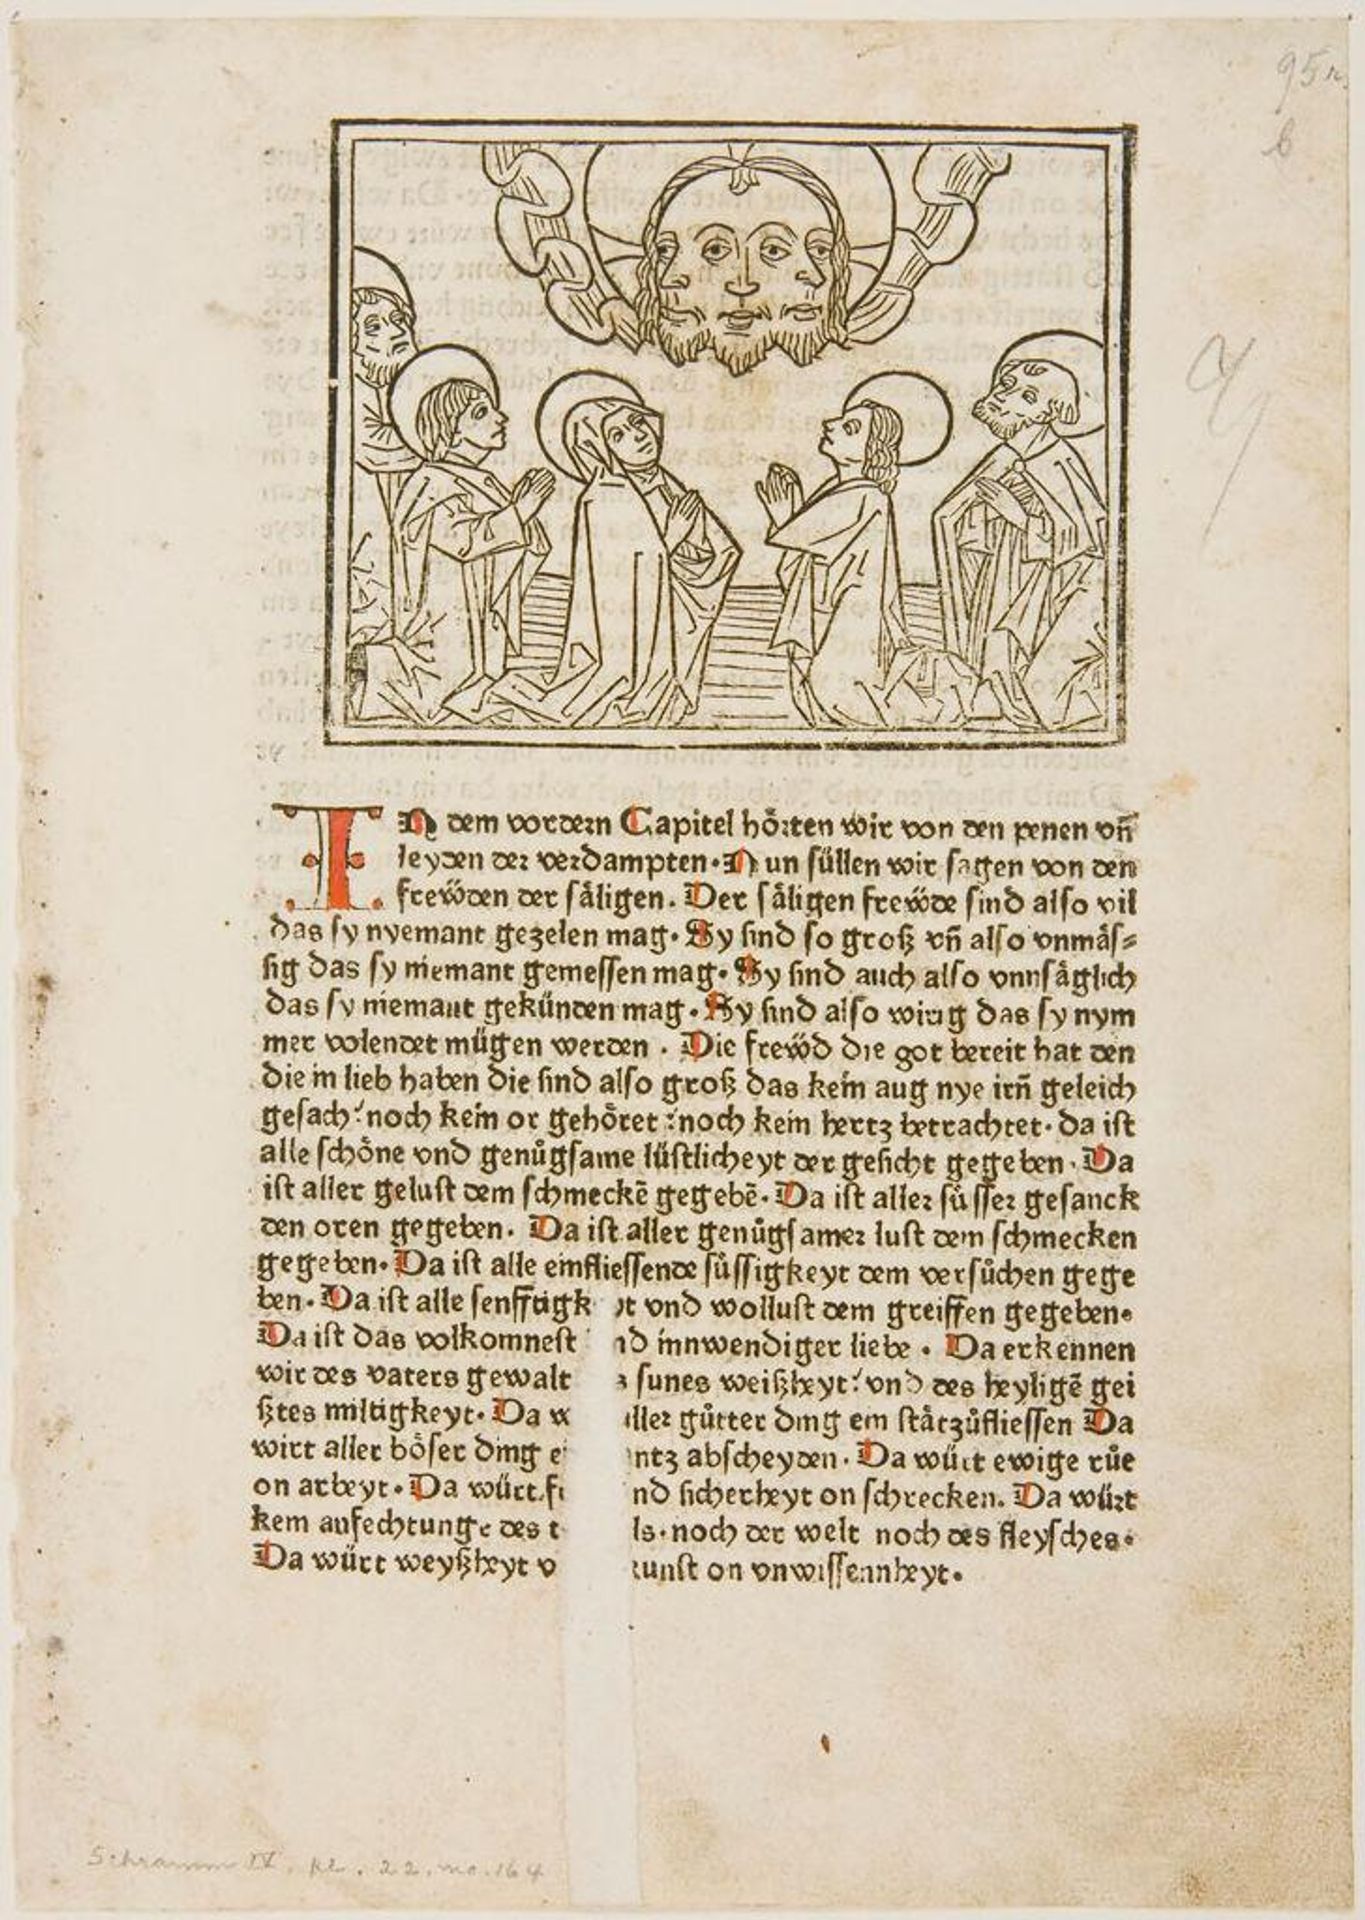 95r
b
IN dem vordern Capitel hörten wir von den penen vn̄
leyden der verdampten. Nun süllen wir sagen von den
frewden der säligen. Der säligen frewde sind also vil
das sy nyemant gezelen mag. Sy sind so groß vn̄ also vnmäs⸗
sig das sy niemant gemessen mag. Sy sind auch also vnnsäglich
das sy niemant gekünden mag. Sy sind also wirig das sy nym
mer volendet mügen werden. Die frewd die got bereit hat den
die in lieb haben die sind also groß das kein aug nye irn̄ geleich
gesach: noch kein or gehöret: noch kein hertz betrachtet. da ist
alle schöne vnd genůgsame lüstlicheyt der gesicht gegeben. Da
ist aller gelust dem schmeckē gegebē. Da ist aller süsser gesanck
den oren gegeben. Da ist aller genůgsamer lust dem schmecken
gegeben. Da ist alle einfliessende süssigkeyt dem versůchen gege
ben. Da ist alle senfftigk t vnd wollust dem greiffen gegeben.
Da ist das volkomnest d innwendiger liebe. Da erkennen
wir des vaters gewalt sunes weißheyt: vnd des heyligē gei
ßtes miltigkeyt. Da w aller gůtter ding ein stätzůfliessen Da
wirt aller böser ding e ntz abscheyden. Da würt ewige růe
on arbeyt. Da würt f nd sicherheyt on schrecken. Da würt
kein anfechtunge des t ls. noch der welt noch des fleysches.
Da würt weyßheyt v kunst on vnwissennheyt.
Schramm IV. pl. 22. no. 164